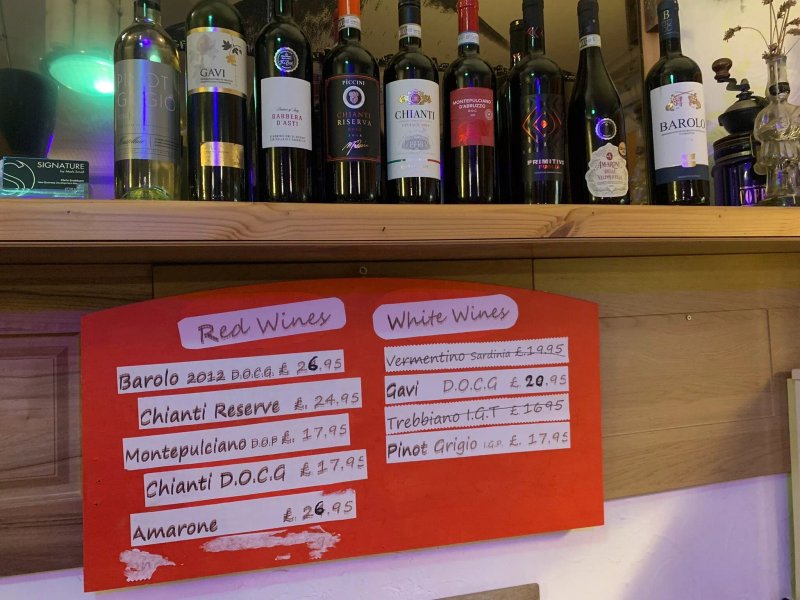 PINOT
GRIGIO
GAVI
BARBERA
D'ASTI
PICCINI
CHIANTI
RISERVA
CHIANTI
MONTEPULCIANO
D'ABRUZZO
PRIMITIVO
PUGLIA
AMARONE
BAROLO
SIGNATURE
Red Wines
Barolo 2012 D.O.C.G £ 26.95
Chianti Reserve £. 24.95
Montepulciano D.O.P £. 17.95
Chianti D.O.C.G £ 17.95
Amarone £. 26.95
White Wines
Vermentino Sardinia £.19.95
Gavi D.O.C.G £ 20.95
Trebbiano I.G.T £ 16.95
Pinot Grigio I.G.P. £. 17.95